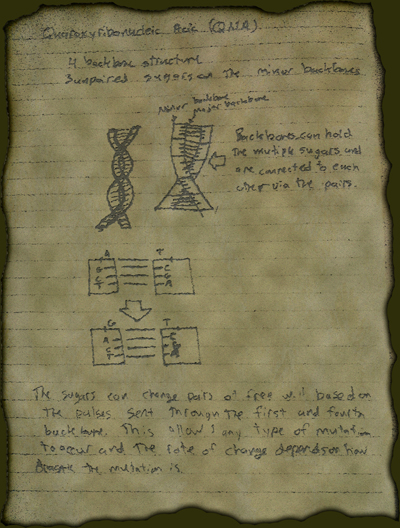 Quatoxyribonucleic Acid (QNA)
4 backbone structure
3 unpaired sugars on the minor backbones
Minor backbone
Major backbone
Backbones can hold
the multiple sugars and
are connected to each
other via the pairs.
A T
G C
C G
T A
G T
A C
C
T
The sugars can change pairs at free will based on
the pulses sent through the first and fourth
backbone. This allows any type of mutation
to occur and the rate of change depends on how
drastic the mutation is.